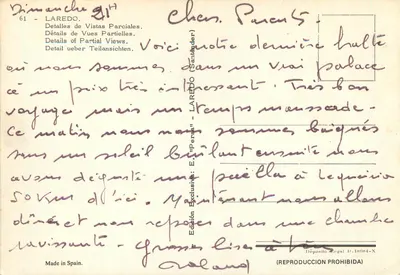 Dimanche 21H
Chers Parents.
61 - LAREDO.
Detalles de Vistas Parciales.
Détails de Vues Partielles.
Details of Partial Views.
Detail ueber Teilansichten.
Voici notre dernière halte
où nous sommes dans un vrai palace
à un prix très intéressant. Très bon
voyage mais un temps maussade.
Ce matin nous nous sommes baignés
sous un soleil brûlant ensuite nous
avons dégusté une paëlla à Lequeitio
50 Kms d'ici. Maintenant nous allons
dîner et nous reposer dans une chambre
ravissante. Grosses bises à
Roland
Edición Exclusiva: Ed. "Persa" - LAREDO (Santander)
Made in Spain.
(REPRODUCCION PROHIBIDA)